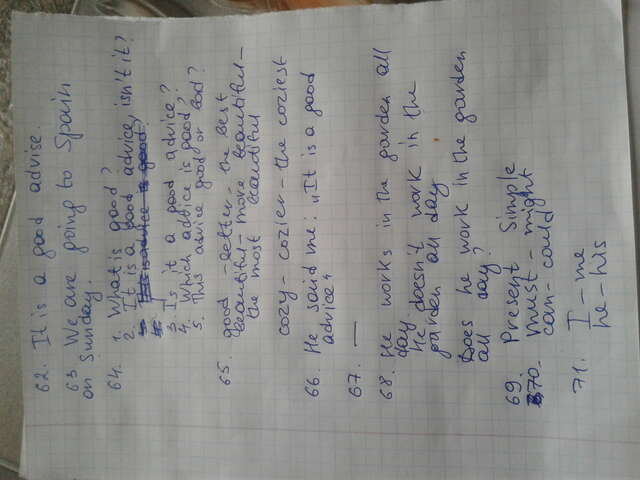 62. It is a good advise.
63 We are going to Spain
on Sunday.
64. 1. What is good?
2. It is a good advice, isn't it?
3. Is it a good advice?
4. Which advice is good?
5. This advice good or bad?
65. good - better - the best
beautiful - more beautiful -
the most beautiful
cozy - cozier - the coziest
66. He said me: „It is a good
advice"
67. —
68. He works in the garden all
day
He doesn't work in the
garden all day
Does he work in the garden
all day?
69. Present Simple
70. must - might
can - could
71. I - me
he - his